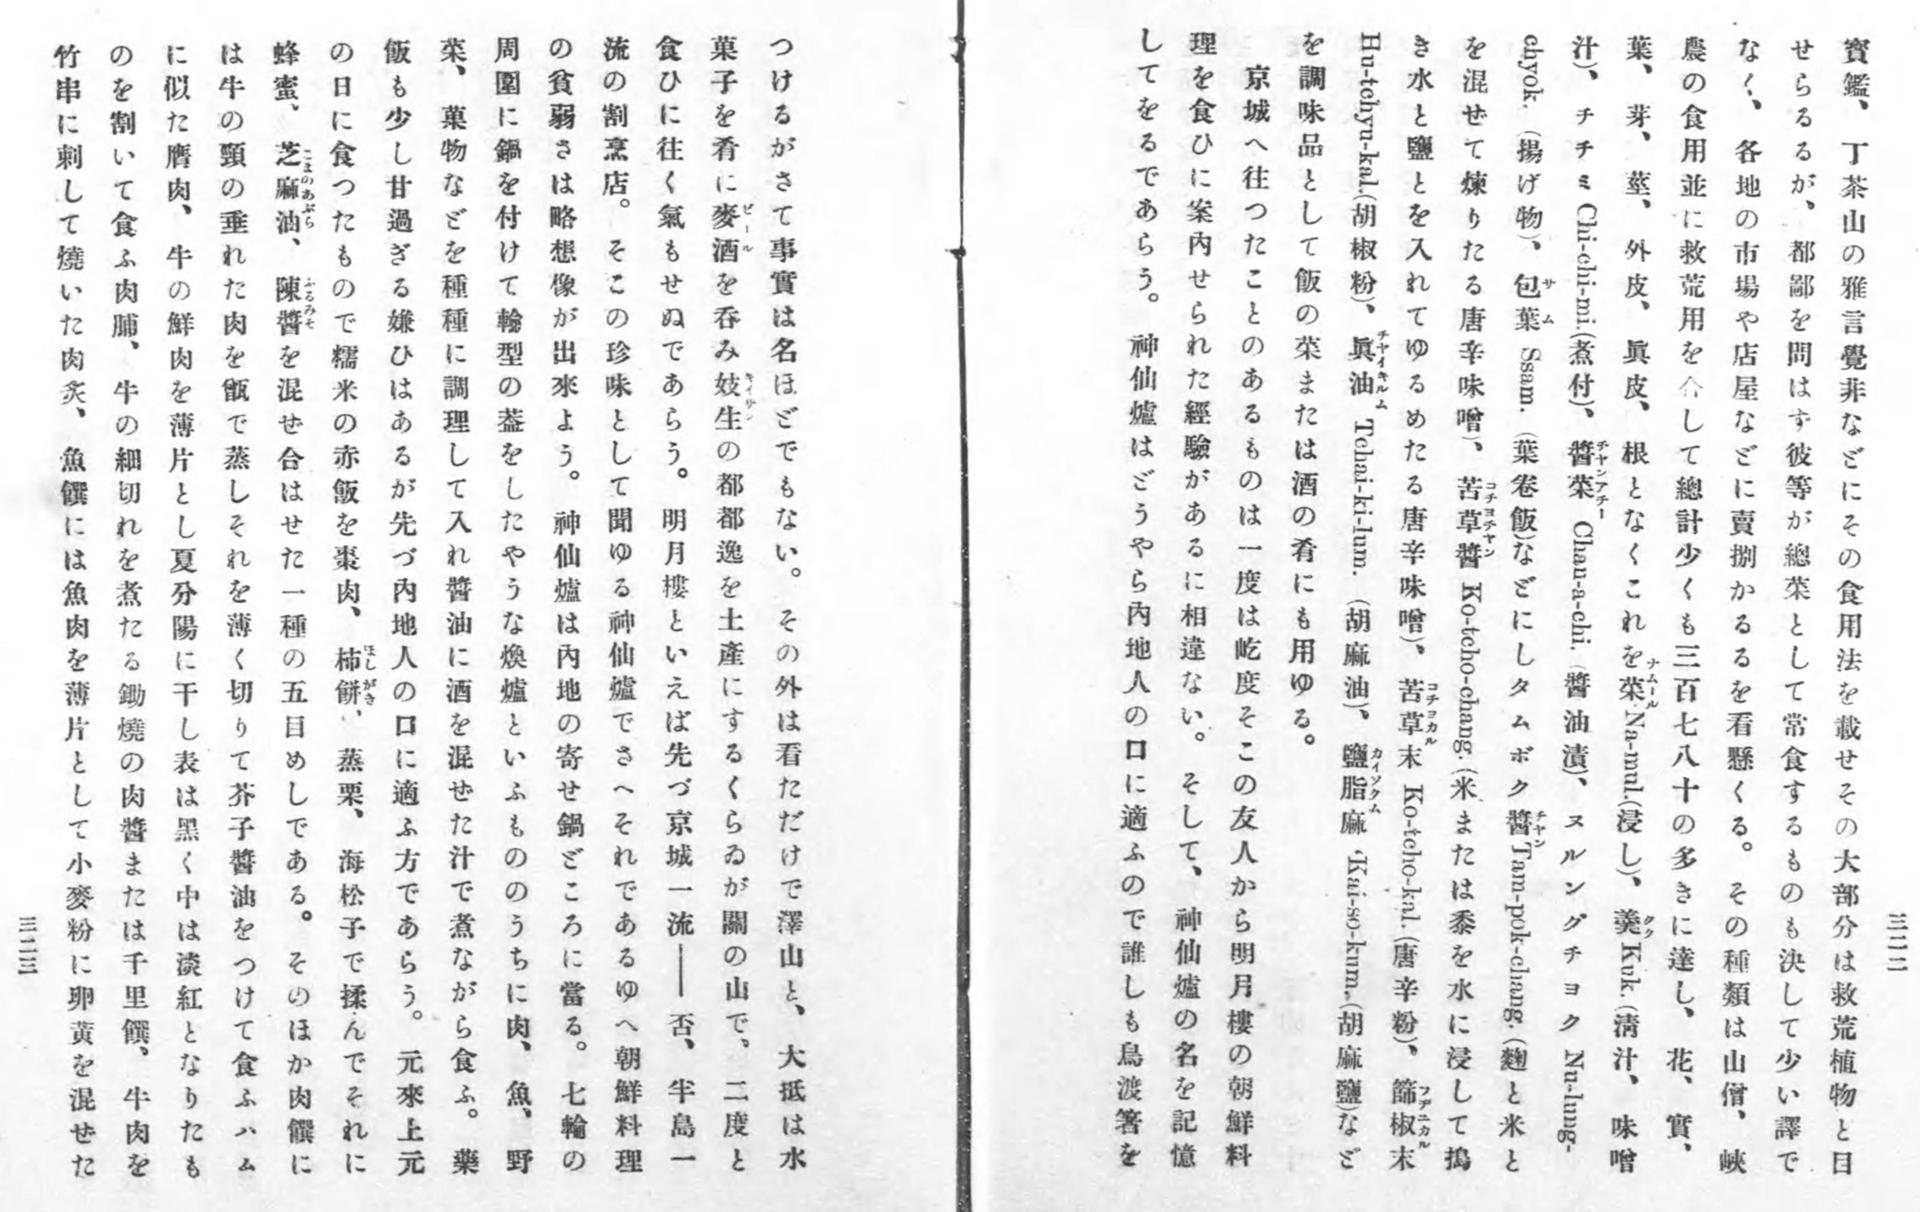 寶鑑、丁茶山の雅言覺非などにその食用法を載せその大部分は救荒植物と目
せらるるが、都鄙を問はず彼等が總菜として常食するものも決して少い譯で
なく、各地の市場や店屋などに賣捌かるるを看懸くる。その種類は山僧、峽
農の食用並に救荒用を合して總計少くも三百七八十の多きに達し、花、實、
葉、芽、莖、外皮、眞皮、根となくこれを菜ナムール Na-mul.(浸し)、羹クク Kuk.(淸汁、味噌
汁)、チチミ Chi-chi-mi.(煮付)、醬菜チヤンアチー Chan-a-chi.(醬油漬)、ヌルングチヨク Nu-lung-
chyok.(揚げ物)、包葉サム Ssam.(葉卷飯)などにしタムボク醬チヤン Tam-pok-chang.(麹と米と
を混ぜて煉りたる唐辛味噌)、苦草醬コチヨチヤン Ko-tcho-chang.(米または黍を水に浸して搗
き水と鹽とを入れてゆるめたる唐辛味噌)、苦草末コチヨカル Ko-tcho-kal.(唐辛粉)、篩椒末フチニカル
Hu-tchyu-kal.(胡椒粉)、眞油チヤイキルム Tchai-ki-lum.(胡麻油)、鹽脂麻カイソクム Kai-so-kum.(胡麻鹽)など
を調味品として飯の菜または酒の肴にも用ゆる。
京城へ往つたことのあるものは一度は屹度そこの友人から明月樓の朝鮮料
理を食ひに案內せられた經驗があるに相違ない。そして、神仙爐の名を記憶
してをるであらう。神仙爐はどうやら內地人の口に適ふので誰しも鳥渡箸を
三二二
つけるがさて事實は名ほどでもない。その外は看ただけで澤山と、大抵は水
菓子を肴に麥酒ビールを呑み妓生キイサンの都都逸を土產にするくらゐが關の山で、二度と
食ひに往く氣もせぬであらう。明月樓といえば先づ京城一流――否、半島一
流の割烹店。そこの珍味として聞ゆる神仙爐でさへそれであるゆへ朝鮮料理
の貧弱さは略想像が出來よう。神仙爐は內地の寄せ鍋どころに當る。七輪の
周圍に鍋を付けて輪型の葢をしたやうな煥爐といふもののうちに肉、魚、野
菜、菓物などを種種に調理して入れ醬油に酒を混ぜた汁で煮ながら食ふ。藥
飯も少し甘過ぎる嫌ひはあるが先づ內地人の口に適ふ方であらう。元來上元
の日に食つたもので糯米の赤飯を棗肉、柿餅ほしがき、蒸栗、海松子で揉んでそれに
蜂蜜、芝麻油ごまのあぶら、陳醬ふるみそを混ぜ合はせた一種の五目めしである。そのほか肉饌に
は牛の頸の垂れた肉を甑で蒸しそれを薄く切りて芥子醬油をつけて食ふハム
に似た膺肉、牛の鮮肉を薄片とし夏分陽に干し表は黑く中は淡紅となりたも
のを割いて食ふ肉脯、牛の細切れを煮たる鋤燒の肉醬または千里饌、牛肉を
竹串に刺して燒いた肉炙、魚饌には魚肉を薄片として小麥粉に卵黃を混ぜた
三二三